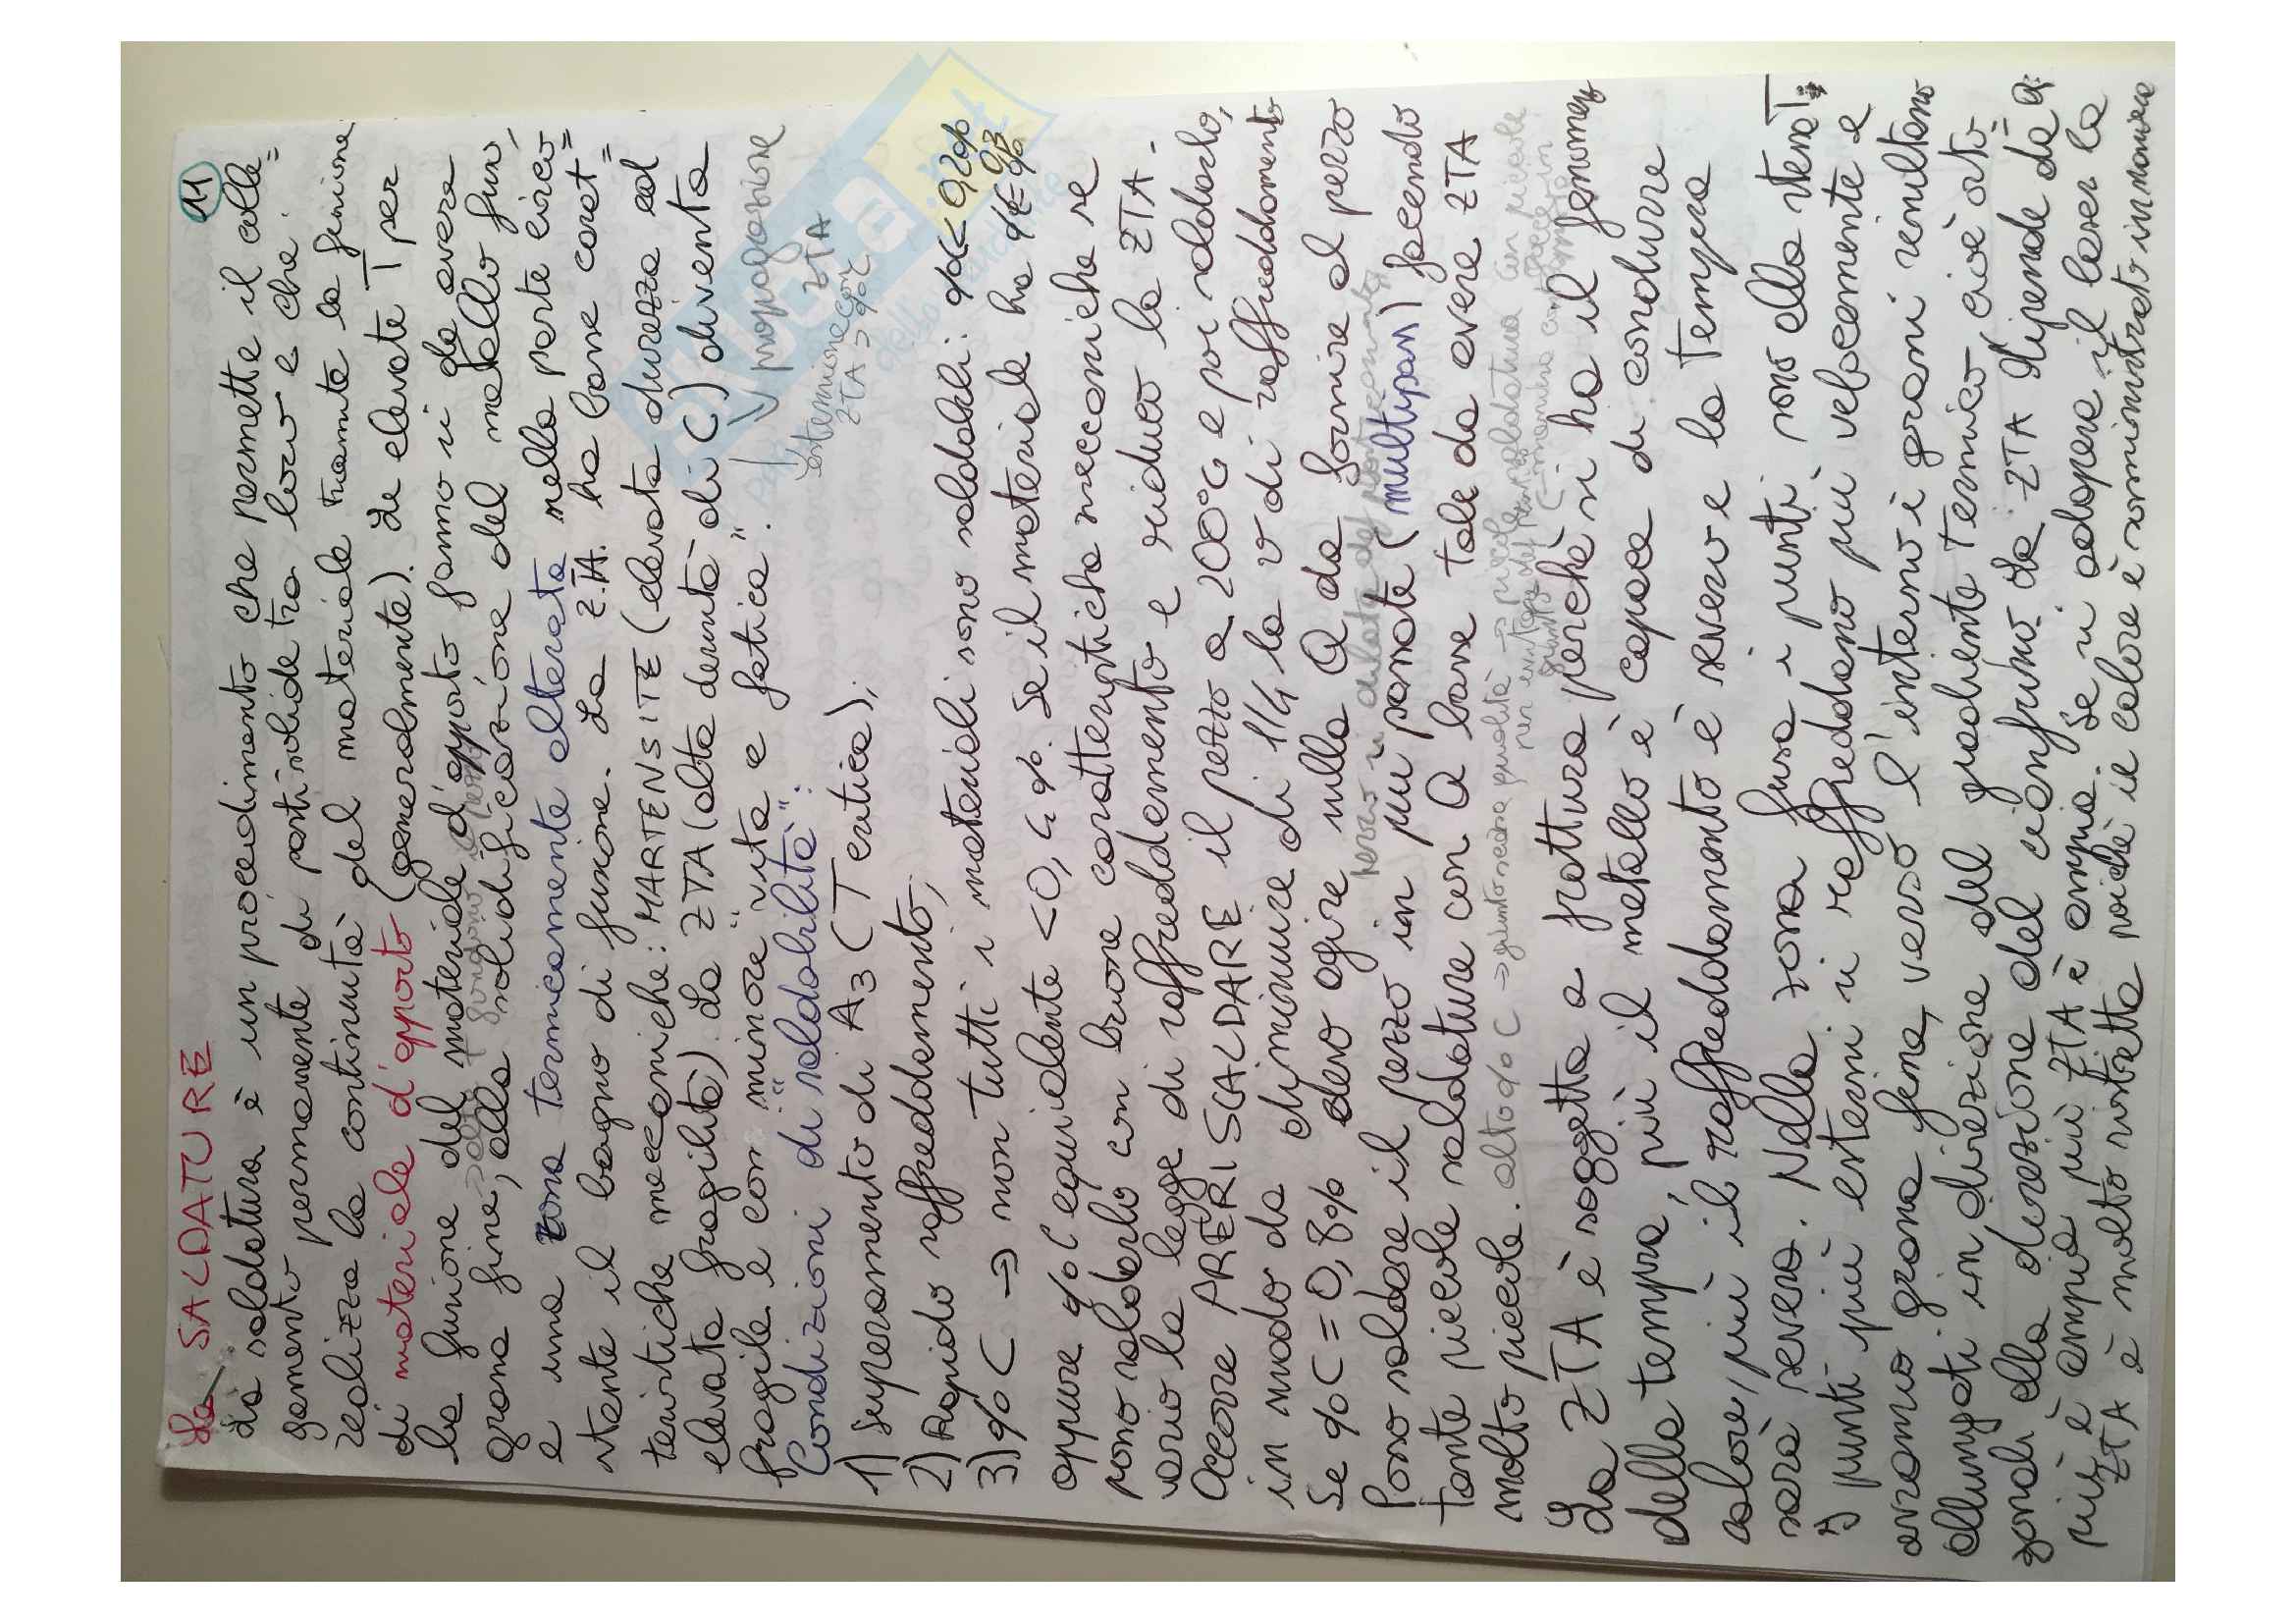 11
La SALDATURE
La saldatura è un procedimento che permette il colle=
gamento permanente di parti solide tra loro e che
realizza la continuità del materiale tramite la fusione
di materiale d'apporto (generalmente). Le elevate T per
la fusione del materiale d'apporto fanno sì da avere
grana fine, alla solidificazione del metallo fuso,
e una zona termicamente alterata nella parte circo=
stante il bagno di fusione. La ZTA. ha basse caratt=
teristiche meccaniche: MARTENSITE (elevata durezza ed
elevata fragilità). La ZTA (alta densità di C) diventa
fragile e con minore "vita e fatica".
propagazione
estensione ZTA
Condizioni di "saldabilità":
1) superamento di A3 (T critica);
2) Rapido raffreddamento;
3) %C → non tutti i materiali sono saldabili: %C<0,2%
oppure %C equivalente <0,4%. Se il materiale ha
posso saldarlo con buone caratteristiche meccaniche se
vario la legge di raffreddamento e riduco la ZTA.
Occorre PRERISCALDARE il pezzo a 200°C e poi saldarlo,
in modo da diminuire di 1/4 la v di raffreddamento
Se %C = 0,8% devo agire sulla Q da fornire al pezzo
Posso saldare il pezzo in più passate (multipass) facendo
tante piccole saldature con Q basse tale da avere ZTA
molto piccole. alto %C →
La ZTA è soggetta a frattura perché si ha il fenomeno
della tempra, più il metallo è capace di condurre
calore, più il raffreddamento è severo e la tempra
sarà severa. Nella zona fusa i punti sono alla stessa T:
I punti più esterni si raffreddano più velocemente e
avranno grana fine, verso l'interno i grani risultano
allungati in direzione del gradiente termico, cioè orto=
gonali alla direzione del cianfrino. La ZTA dipende da Q:
più è ampia più ZTA è ampia. Se si adopera il laser la
ZTA è molto ristretta poiché il calore è somministrato in maniera